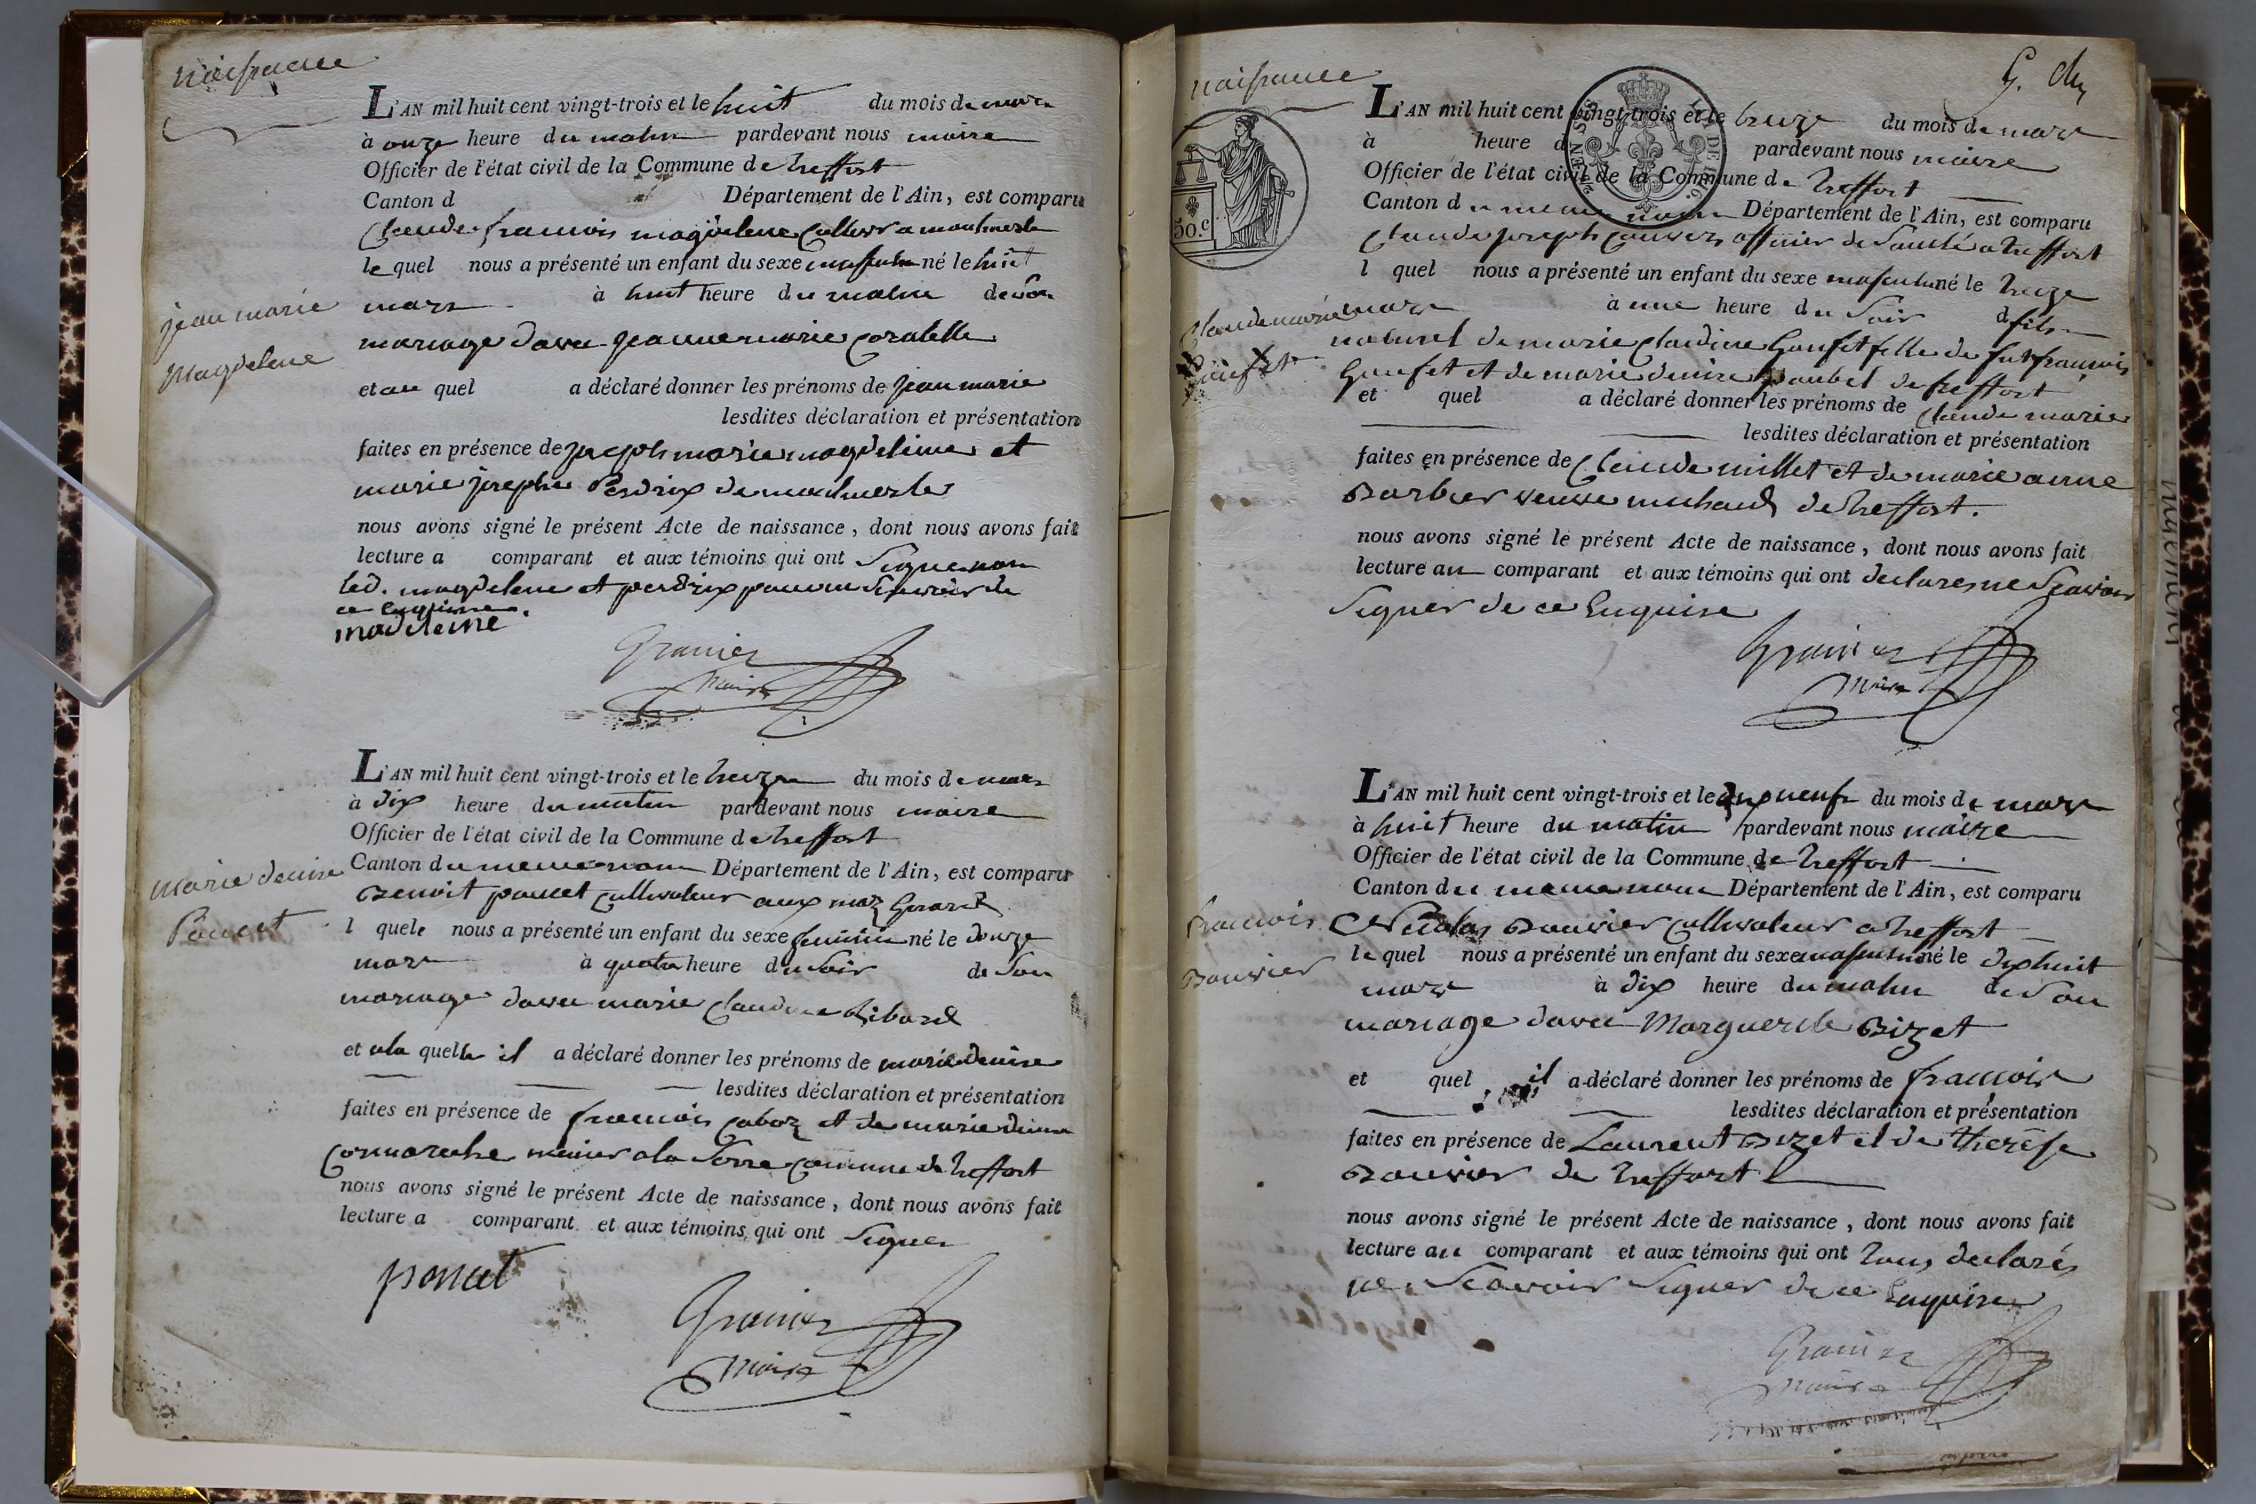 naissance
L'AN mil huit cent vingt-trois et le huit du mois de mars
à onze heure du matin pardevant nous maire
Officier de l'état civil de la Commune de treffort
Canton d Département de l'Ain, est comparu
Claude françois magdelene cultivr a montmerle
le quel nous a présenté un enfant du sexe masculin né le huit
mars à huit heure du matin de son
jean marie
Magdelene
mariage davec jeanne marie
et au quel a déclaré donner les prénoms de jean marie
lesdites déclaration et présentation
faites en présence de joseph marie magdeleine et
marie josephe Perdrix de montmerle
nous avons signé le présent Acte de naissance, dont nous avons fait
lecture a comparant et aux témoins qui ont signe non
led. magdelene et perdrix pour ne scavoir de
ce Enquise.
madeleine
Granier
Maire
L'AN mil huit cent vingt-trois et le treize du mois de mars
à dix heure du matin pardevant nous maire
Officier de l'état civil de la Commune de treffort
Canton du meme nom Département de l'Ain, est comparu
marie denise
Poncet
Benoit poncet cultivateur aux maz
l quele nous a présenté un enfant du sexe feminin né le douze
mars à quatre heure du soir de son
mariage davec marie Claudine Ribard
et ala quelle il a déclaré donner les prénoms de marie denise
lesdites déclaration et présentation
faites en présence de francois caboz et de marie denise
Cormareche a la Serre commune de treffort
nous avons signé le présent Acte de naissance, dont nous avons fait
lecture a comparant et aux témoins qui ont Signer
poncet
Granier
Maire
naissance
L'AN mil huit cent vingt-trois et le treize du mois de mars
à heure d pardevant nous maire
Officier de l'état civil de la Commune de treffort
Canton du meme nom Département de l'Ain, est comparu
50.c
Claude joseph officier de Santé a treffort
l quel nous a présenté un enfant du sexe masculin né le treize
mars à une heure du Soir d fils
Claude marie
Gonfet
naturel de marie Claudine Gonfet fille de fut francois
Gonfet et de marie denise de treffort
et quel a déclaré donner les prénoms de Claude marie
lesdites déclaration et présentation
faites en présence de Claude millet et de marie anne
Barbier veuve michaud de treffort.
nous avons signé le présent Acte de naissance, dont nous avons fait
lecture au comparant et aux témoins qui ont declares ne Scavoir
Signer de ce Enquise
Granier
Maire
L'AN mil huit cent vingt-trois et le dix neuf du mois de mars
à huit heure du matin pardevant nous maire
Officier de l'état civil de la Commune de treffort
Canton du meme nom Département de l'Ain, est comparu
francois
Bouvier
Nicolas Bouvier cultivateur a treffort
le quel nous a présenté un enfant du sexe masculin né le dix huit
mars à dix heure du matin de Son
mariage davec Marguerite Bizet
et quel il a déclaré donner les prénoms de francois
lesdites déclaration et présentation
faites en présence de Laurent Bizet et de therése
Bouvier de treffort
nous avons signé le présent Acte de naissance, dont nous avons fait
lecture au comparant et aux témoins qui ont tous declarés
ne Scavoir Signer de ce Enquise
Granier
Maire